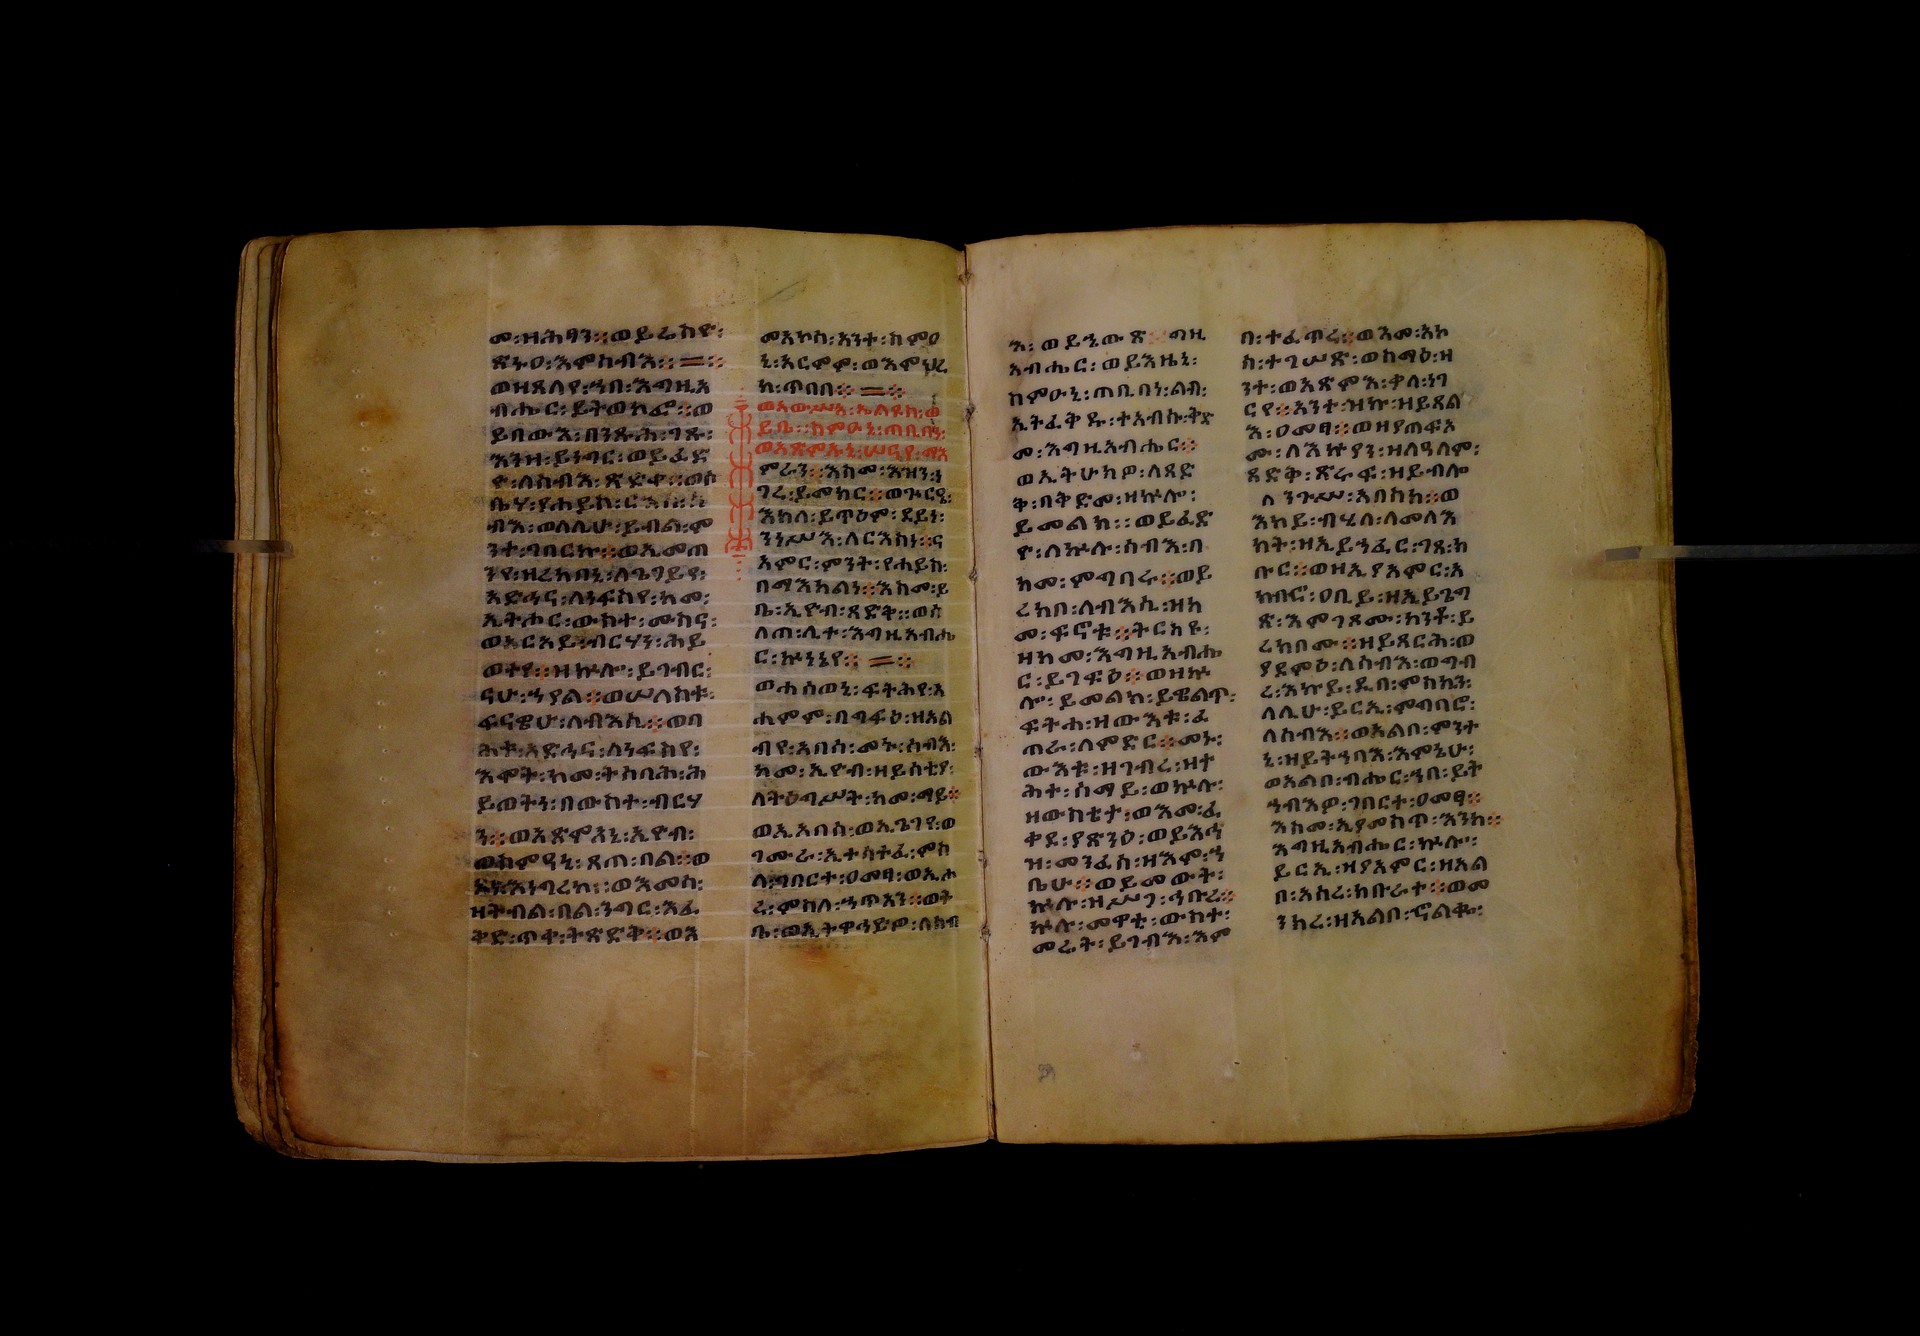 መ፡ዝሕፃን፡፡ወይሬስዮ፡
ጽኑዐ፡እምከብእ፡፡
ወዝጸለየ፡ኀበ፡እግዚአ
ብሔር፡ይትወከፎ፡፡ወ
ይበውእ፡በንጹሕ፡ገጹ፡
እንዘ፡ይነግር፡ወይፈድ
ዮ፡ለሰብእ፡ጽድቀ፡፡ወስ
ብእ፡ወለሊሁ፡ይብል፡ም
ንተ፡ገበርኩ፡፡ወኢመጠ
ንየ፡ዘረከበኒ፡ለጌገይየ፡
አድኅና፡ለነፍስየ፡ከመ፡
ኢትሑር፡ውስተ፡ሙስና፡
ወአርአይ፡ብርሃነ፡ሕይ
ወትየ፡፡ዘኵሎ፡ይገብር፡
ናሁ፡ኀያል፡፡ወሠለስተ፡
ፍናዌሁ፡ለብእሲ፡፡ወባ
ሕቱ፡አድኅና፡ለነፍስየ፡
እሞት፡ከመ፡ትሰባሕ፡ሕ
ይወትነ፡በውስተ፡ብርሃ
ን፡፡ወአጽምእኒ፡ኢዮብ፡
ወስምዓኒ፡ጸጠ፡በል፡፡ወ
አነ፡እነግረከ፡፡ወእመሰ፡
ዝትብል፡በል፡ንግር፡እፈ
ቅድ፡ጥቀ፡ትጽድቅ፡፡ወእ
መአኮሰ፡አንተ፡ስምዐ
ኒ፡አርምም፡ወእምህረ
ከ፡ጥበበ፡፡
ወአውሥአ፡ኤልዩስ፡ወ
ይቤ፡፡ስምዑኒ፡ጠቢባን፡
ወአጽምኡኒ፡ሠናየ፡ማእ
ምራን፡፡እስመ፡እዝን፡ነ
ገረ፡ይመክር፡፡ወጕርዔ፡
እክለ፡ይጥዕም፡ደይነ፡
ንነሥእ፡ለርእስነ፡፡ና
አምር፡ምንት፡የሐይስ፡
በማእከልነ፡፡እስመ፡ይ
ቤ፡ኢዮብ፡ጻድቅ፡፡ወስ
ለጠ፡ሊተ፡እግዚአብሔ
ር፡ኵነኔየ፡፡
ወሐሰወኒ፡ፍትሕየ፡አ
ሐምም፡በግፍዕ፡ዘእል
ብየ፡አበሳ፡መኑ፡ሰብእ፡
ከመ፡ኢዮብ፡ዘይሰቲያ፡
ለትዕግሥት፡ከመ፡ማይ፡፡
ወኢአበሰ፡ወኢጌገየ፡ወ
ገሙራ፡ኢተሳተፈ፡ምስ
ለ፡ገበርተ፡ዐመፃ፡ወኢሐ
ረ፡ምስለ፡ኃጥአን፡፡ወት
ቤ፡ወኢትዋኅይዎ፡ለሰብ
እ፡ወይኄውጽ፡፡እግዚ
አብሔር፡ወይእዜኒ፡
ስምዑኒ፡ጠቢባነ፡ልብ፡
ኢትፈቅዱ፡ተአብሱ፡ቅድ
መ፡እግዚአብሔር፡፡
ወኢትሁክዎ፡ለጻድ
ቅ፡በቅድመ፡ዘኵሎ፡
ይመልክ፡፡ወይፈድ
ዮ፡ለኵሉ፡ሰብእ፡በ
ከመ፡ምግባሩ፡፡ወይ
ረክቦ፡ለብእሲ፡ዝከ
መ፡ፍኖቱ፡፡ትርስዩ፡
ዘከመ፡እግዚአብሔ
ር፡ይገፍዕ፡፡ወዝኵ
ሎ፡ይመልክ፡ይዌልጥ፡
ፍትሐ፡ዘውእቱ፡ፈ
ጠራ፡ለምድር፡፡መኑ፡
ውእቱ፡ዝገብረ፡ዝተ
ሕተ፡ሰማይ፡ወኵሉ፡
ዘውስቴታ፡ወእመ፡ፈ
ቀደ፡ያጽንዕ፡ወይእኅ
ዝ፡መንፈስ፡ዘእም፡ኀ
ቤሁ፡፡ወይመውት፡
ኵሉ፡ዝሥጋ፡ኅቡረ፡፡
ኵሉ፡መዋቲ፡ውስተ፡
መሬት፡ይገብእ፡እም
በ፡ተፈጥረ፡፡ወእመ፡አኮ
ሰ፡ተገሠጽ፡ወስማዕ፡ዘ
ንተ፡ወአጽምእ፡ቃለ፡ነገ
ርየ፡፡አንተ፡ዝኩ፡ዝይጸል
እ፡ዐመፃ፡፡ወዘያጠፍእ
ሙ፡ለእኩያን፡ዘለዓለም፡
ጻድቅ፡ጽሩፍ፡ዝይብሎ
ለንጉሥ፡አበስከ፡፡ወ
እከይ፡ብሂለ፡ለመለእ
ክት፡ዝኢይኀፈር፡ገጸ፡ክ
ቡር፡፡ወዝኢያአምር፡አ
ክብሮ፡ዐቢይ፡ዘኢይጌግ
ጽ፡እምገጾሙ፡ከንቶ፡ይ
ረክቦሙ፡፡ዝይጸርሕ፡ወ
ያደምዕ፡ለሰብእ፡ወግብ
ረ፡እኩይ፡ዲበ፡ምስኪን፡
ለሊሁ፡ይርኢ፡ምግባሮ፡
ለሰብእ፡፡ወአልቦ፡ምንተ
ኒ፡ዝይትኀባእ፡እምኔሁ፡
ወአልቦ፡ብሔር፡ኀበ፡ይት
ኀብእዎ፡ገበርተ፡ዐመፃ፡፡
እስመ፡ኢያመስጥ፡እንከ፡፡
እግዚአብሔር፡ኵሎ፡
ይርኢ፡ዝያአምር፡ዘአል
ቦ፡አሰረ፡ክቡራተ፡፡ወመ
ንክረ፡ዝአልቦ፡ኆልቈ፡